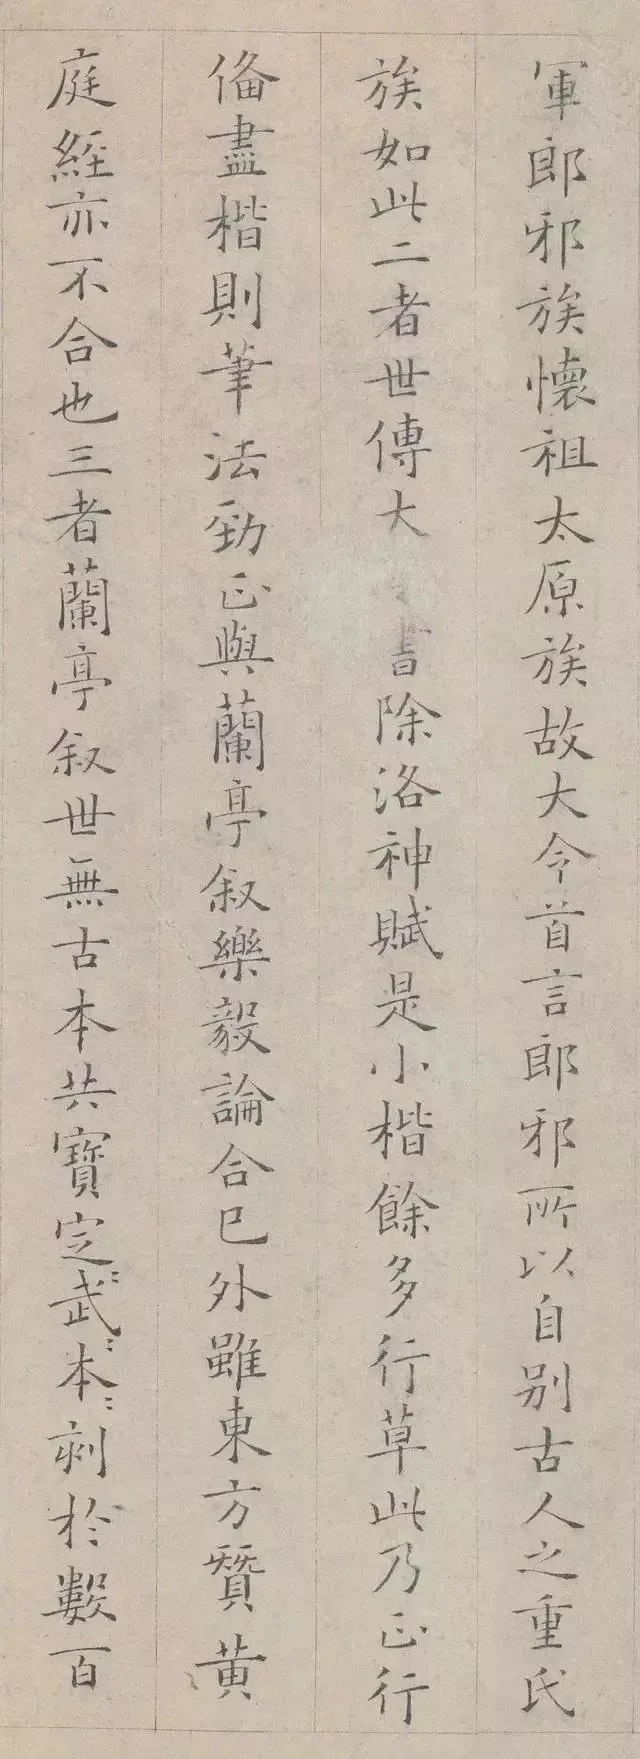 軍郎邪族懷祖太原族故大令首言郎邪所以自别古人之重氏
族如此二者世傳大書除洛神賦是小楷餘多行草此乃正行
俻盡楷則筆法勁正與蘭亭叙樂毅論合已外雖東方贊黄
庭經亦不合也三者蘭亭叙世無古本共寶定〻武〻本〻刻於數百